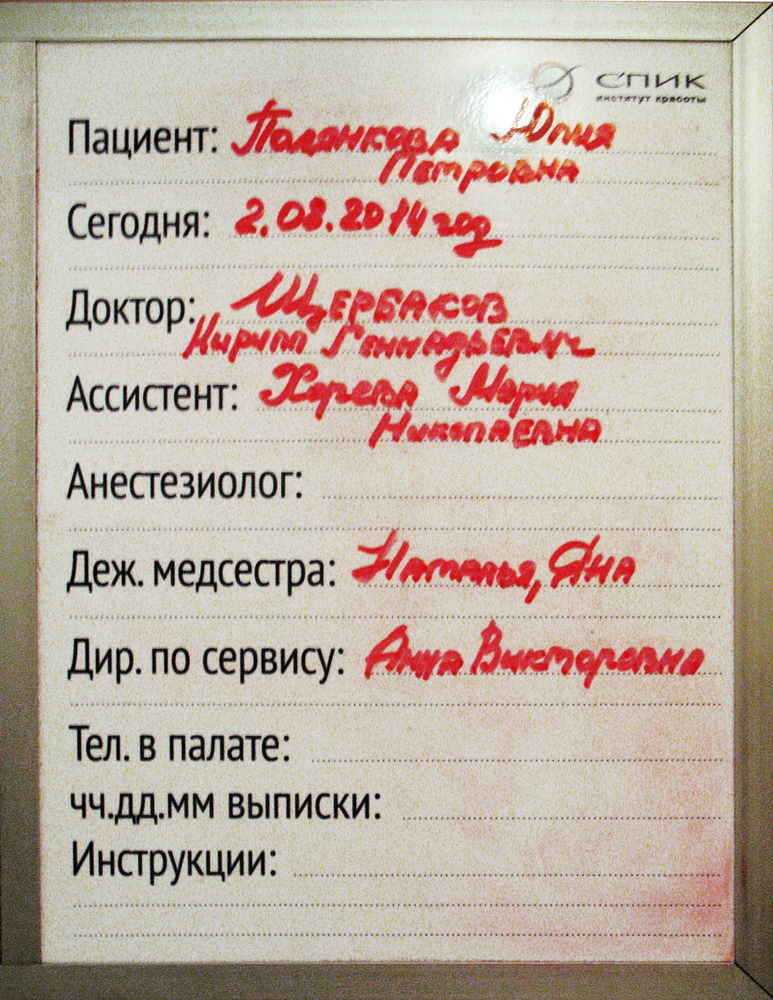 СПИК
институт красоты
Пациент: Полянкова Юлия
Петровна
Сегодня: 2.08.2014 год
Доктор: Щербаков
Кирилл Геннадьевич
Ассистент: Хорева Мария
Николаевна
Анестезиолог:
Деж. медсестра: Наталья, Яна
Дир. по сервису: Анна Викторовна
Тел. в палате:
чч.дд.мм выписки:
Инструкции: